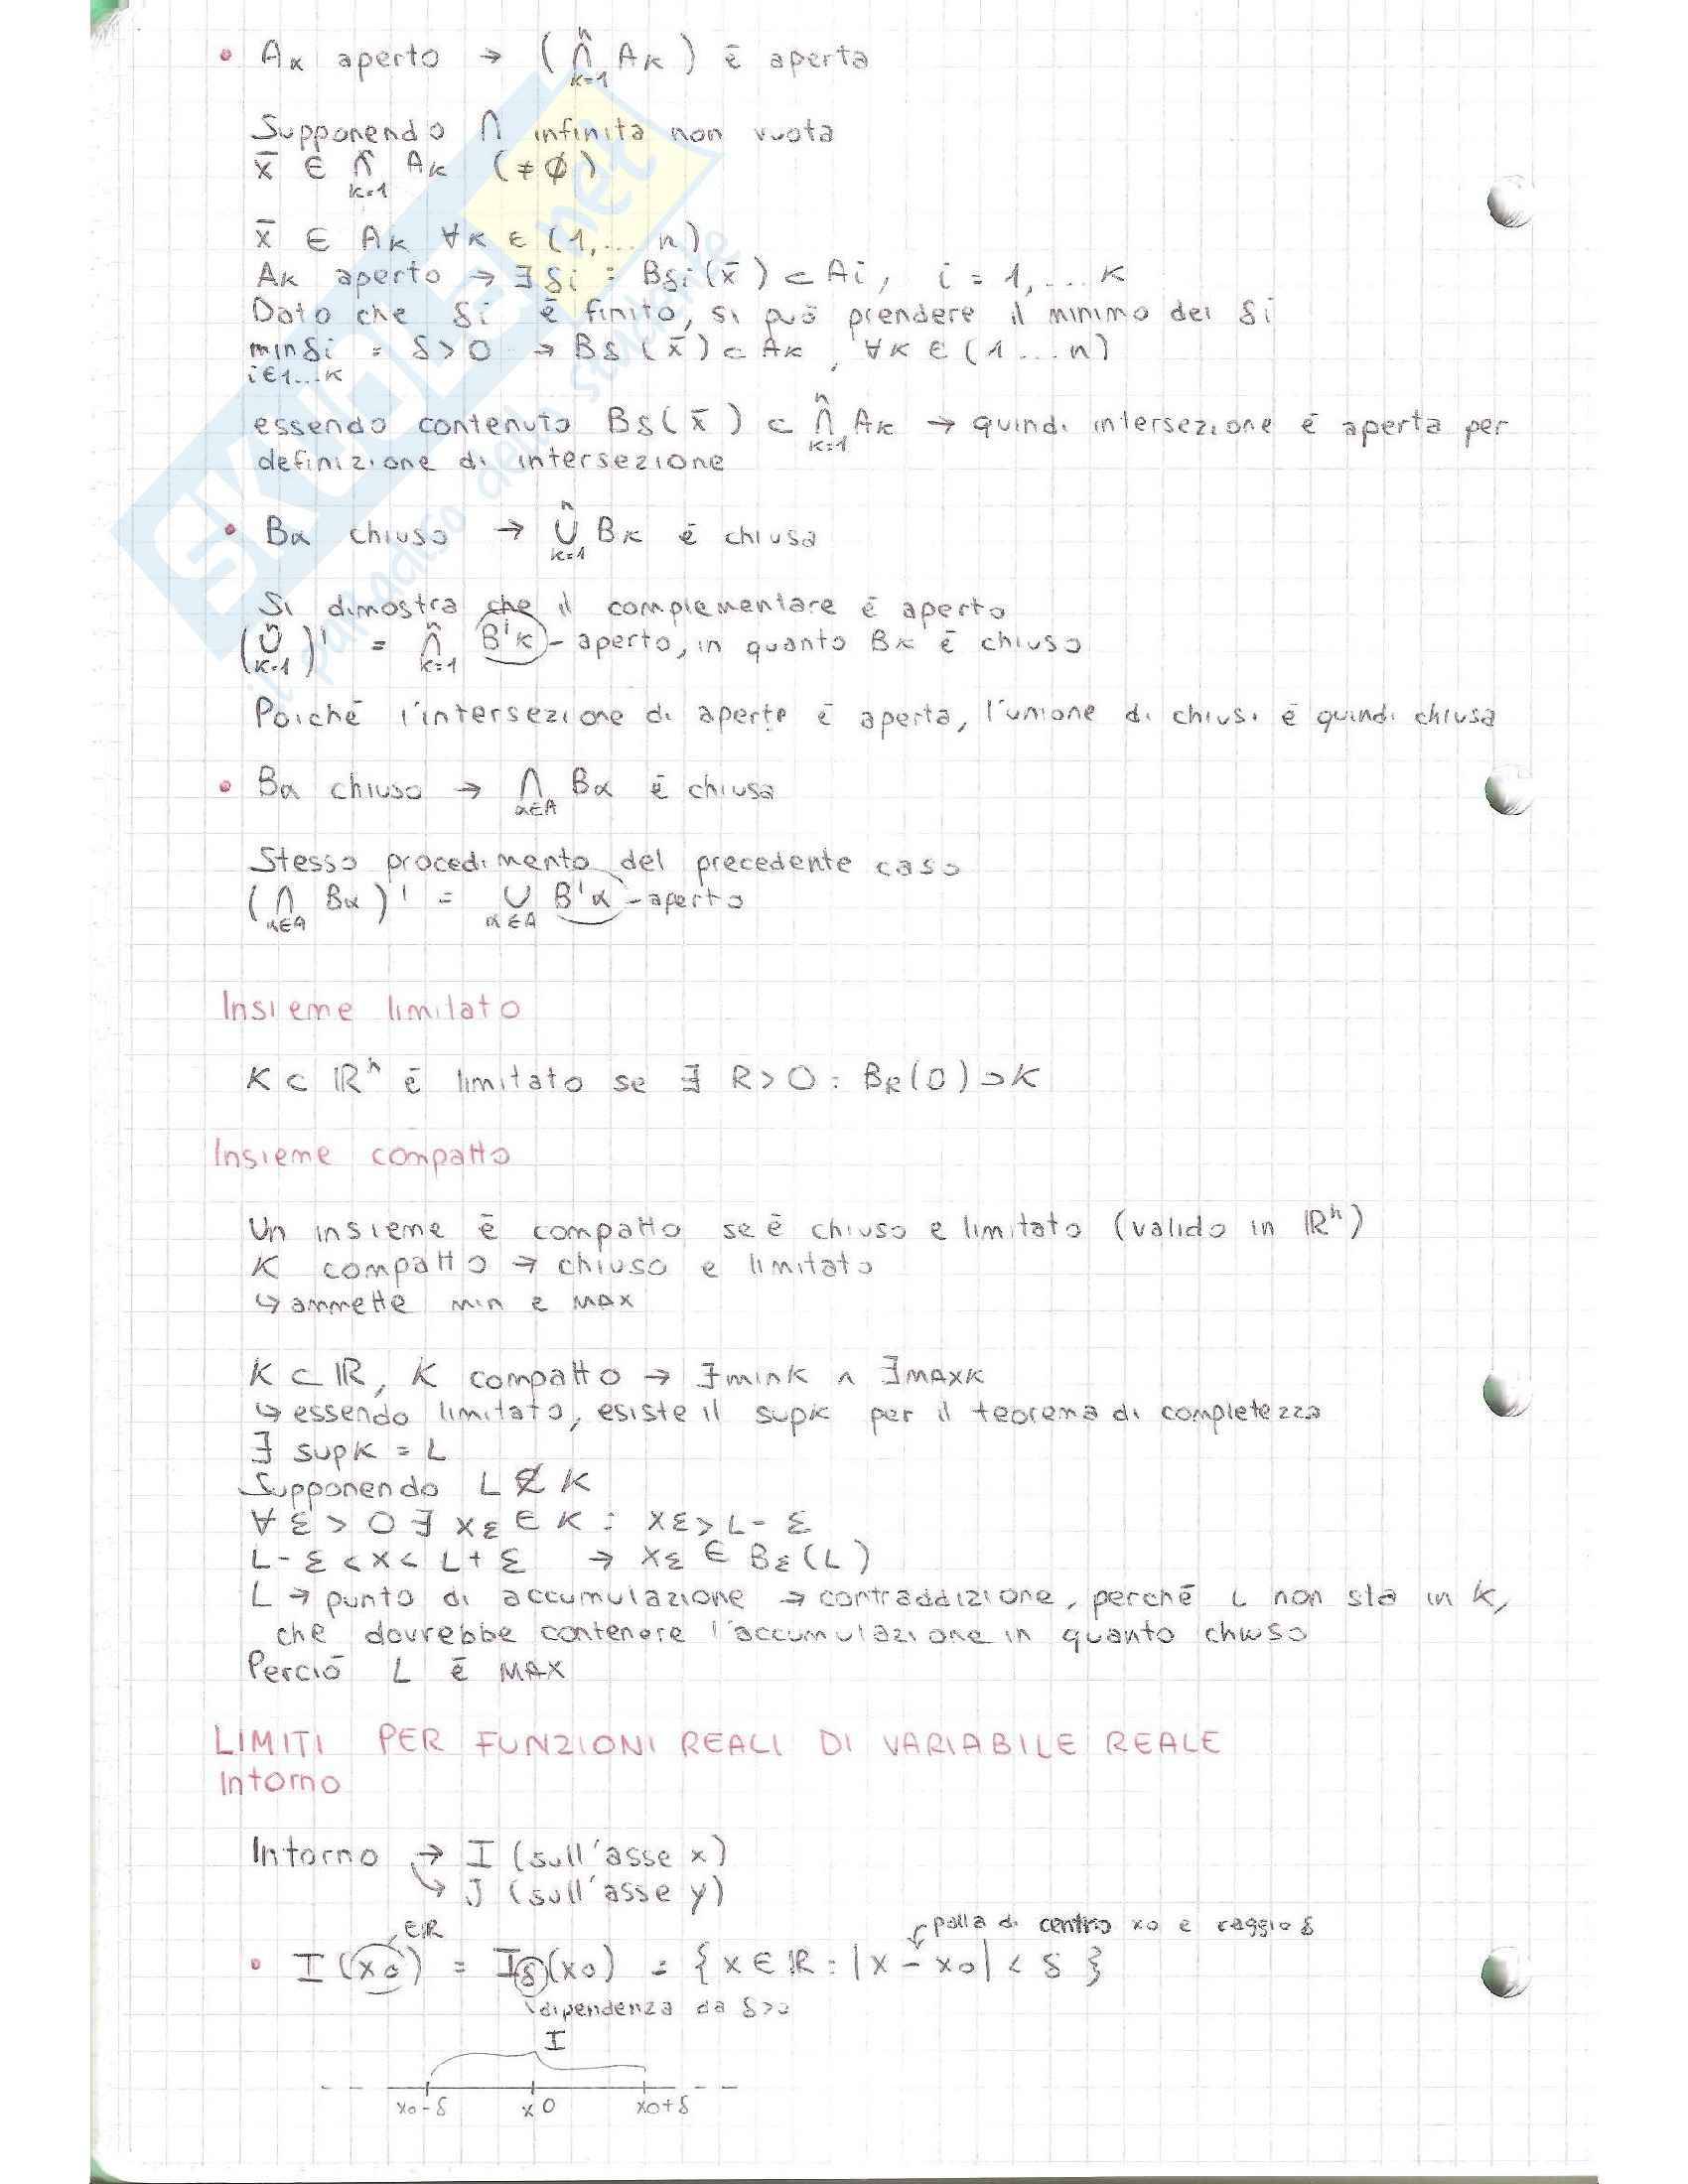 • Aα aperto → ( ⋂ₖ₌₁ⁿ Aκ ) é aperta
Supponendo ⋂ infinita non vuota
x̄ ∈ ⋂ₖ₌₁ⁿ Aκ (≠∅)
x̄ ∈ Aκ ∀κ ∈ (1,... n)
Aκ aperto → ∃ δi : Bδi(x̄) ⊂ Ai, i = 1,... κ
Dato che δi é finito, si puó prendere il minimo dei δi
min δi = δ > 0 → Bδ(x̄) ⊂ Aκ, ∀κ ∈ (1...n)
i∈1...κ
essendo contenuto Bδ(x̄) ⊂ ⋂ₖ₌₁ⁿ Aκ → quindi intersezione é aperta per
definizione di intersezione
• Bα chiuso → ⋃ₖ₌₁ⁿ Bκ é chiusa
Si dimostra che il complementare é aperto
(⋃ₖ₌₁ⁿ)' = ⋂ₖ₌₁ⁿ B'κ - aperto, in quanto Bκ é chiuso
Poiché l'intersezione di aperte é aperta, l'unione di chiusi é quindi chiusa
• Bα chiuso → ⋂ α∈A Bα é chiusa
Stesso procedimento del precedente caso
(⋂ α∈A Bα)' = ⋃ α∈A B'α - aperto
Insieme limitato
K ⊂ ℝⁿ é limitato se ∃ R>0 : BR(0) ⊃ K
Insieme compatto
Un insieme é compatto se é chiuso e limitato (valido in ℝⁿ)
K compatto → chiuso e limitato
↪ ammette min e MAX
K ⊂ ℝ, K compatto → ∃ min K ∧ ∃ MAX K
↪ essendo limitato, esiste il sup K per il teorema di completezza
∃ sup K = L
Supponendo L ∉ K
∀ ε > 0 ∃ xε ∈ K : xε > L - ε
L - ε < x < L + ε → xε ∈ Bε(L)
L → punto di accumulazione → contraddizione, perché L non sta in K,
che dovrebbe contenere l'accumulazione in quanto chiuso
Perció L é MAX
LIMITI PER FUNZIONI REALI DI VARIABILE REALE
Intorno
Intorno → I (sull'asse x)
↪ J (sull'asse y)
∈ℝ palla di centro x0 e raggio δ
• I(x0) = Iδ(x0) = { x ∈ ℝ : |x - x0| < δ }
dipendenza da δ>0
I
x0-δ x0 x0+δ
SKUOLA.net
il paradiso dello studente